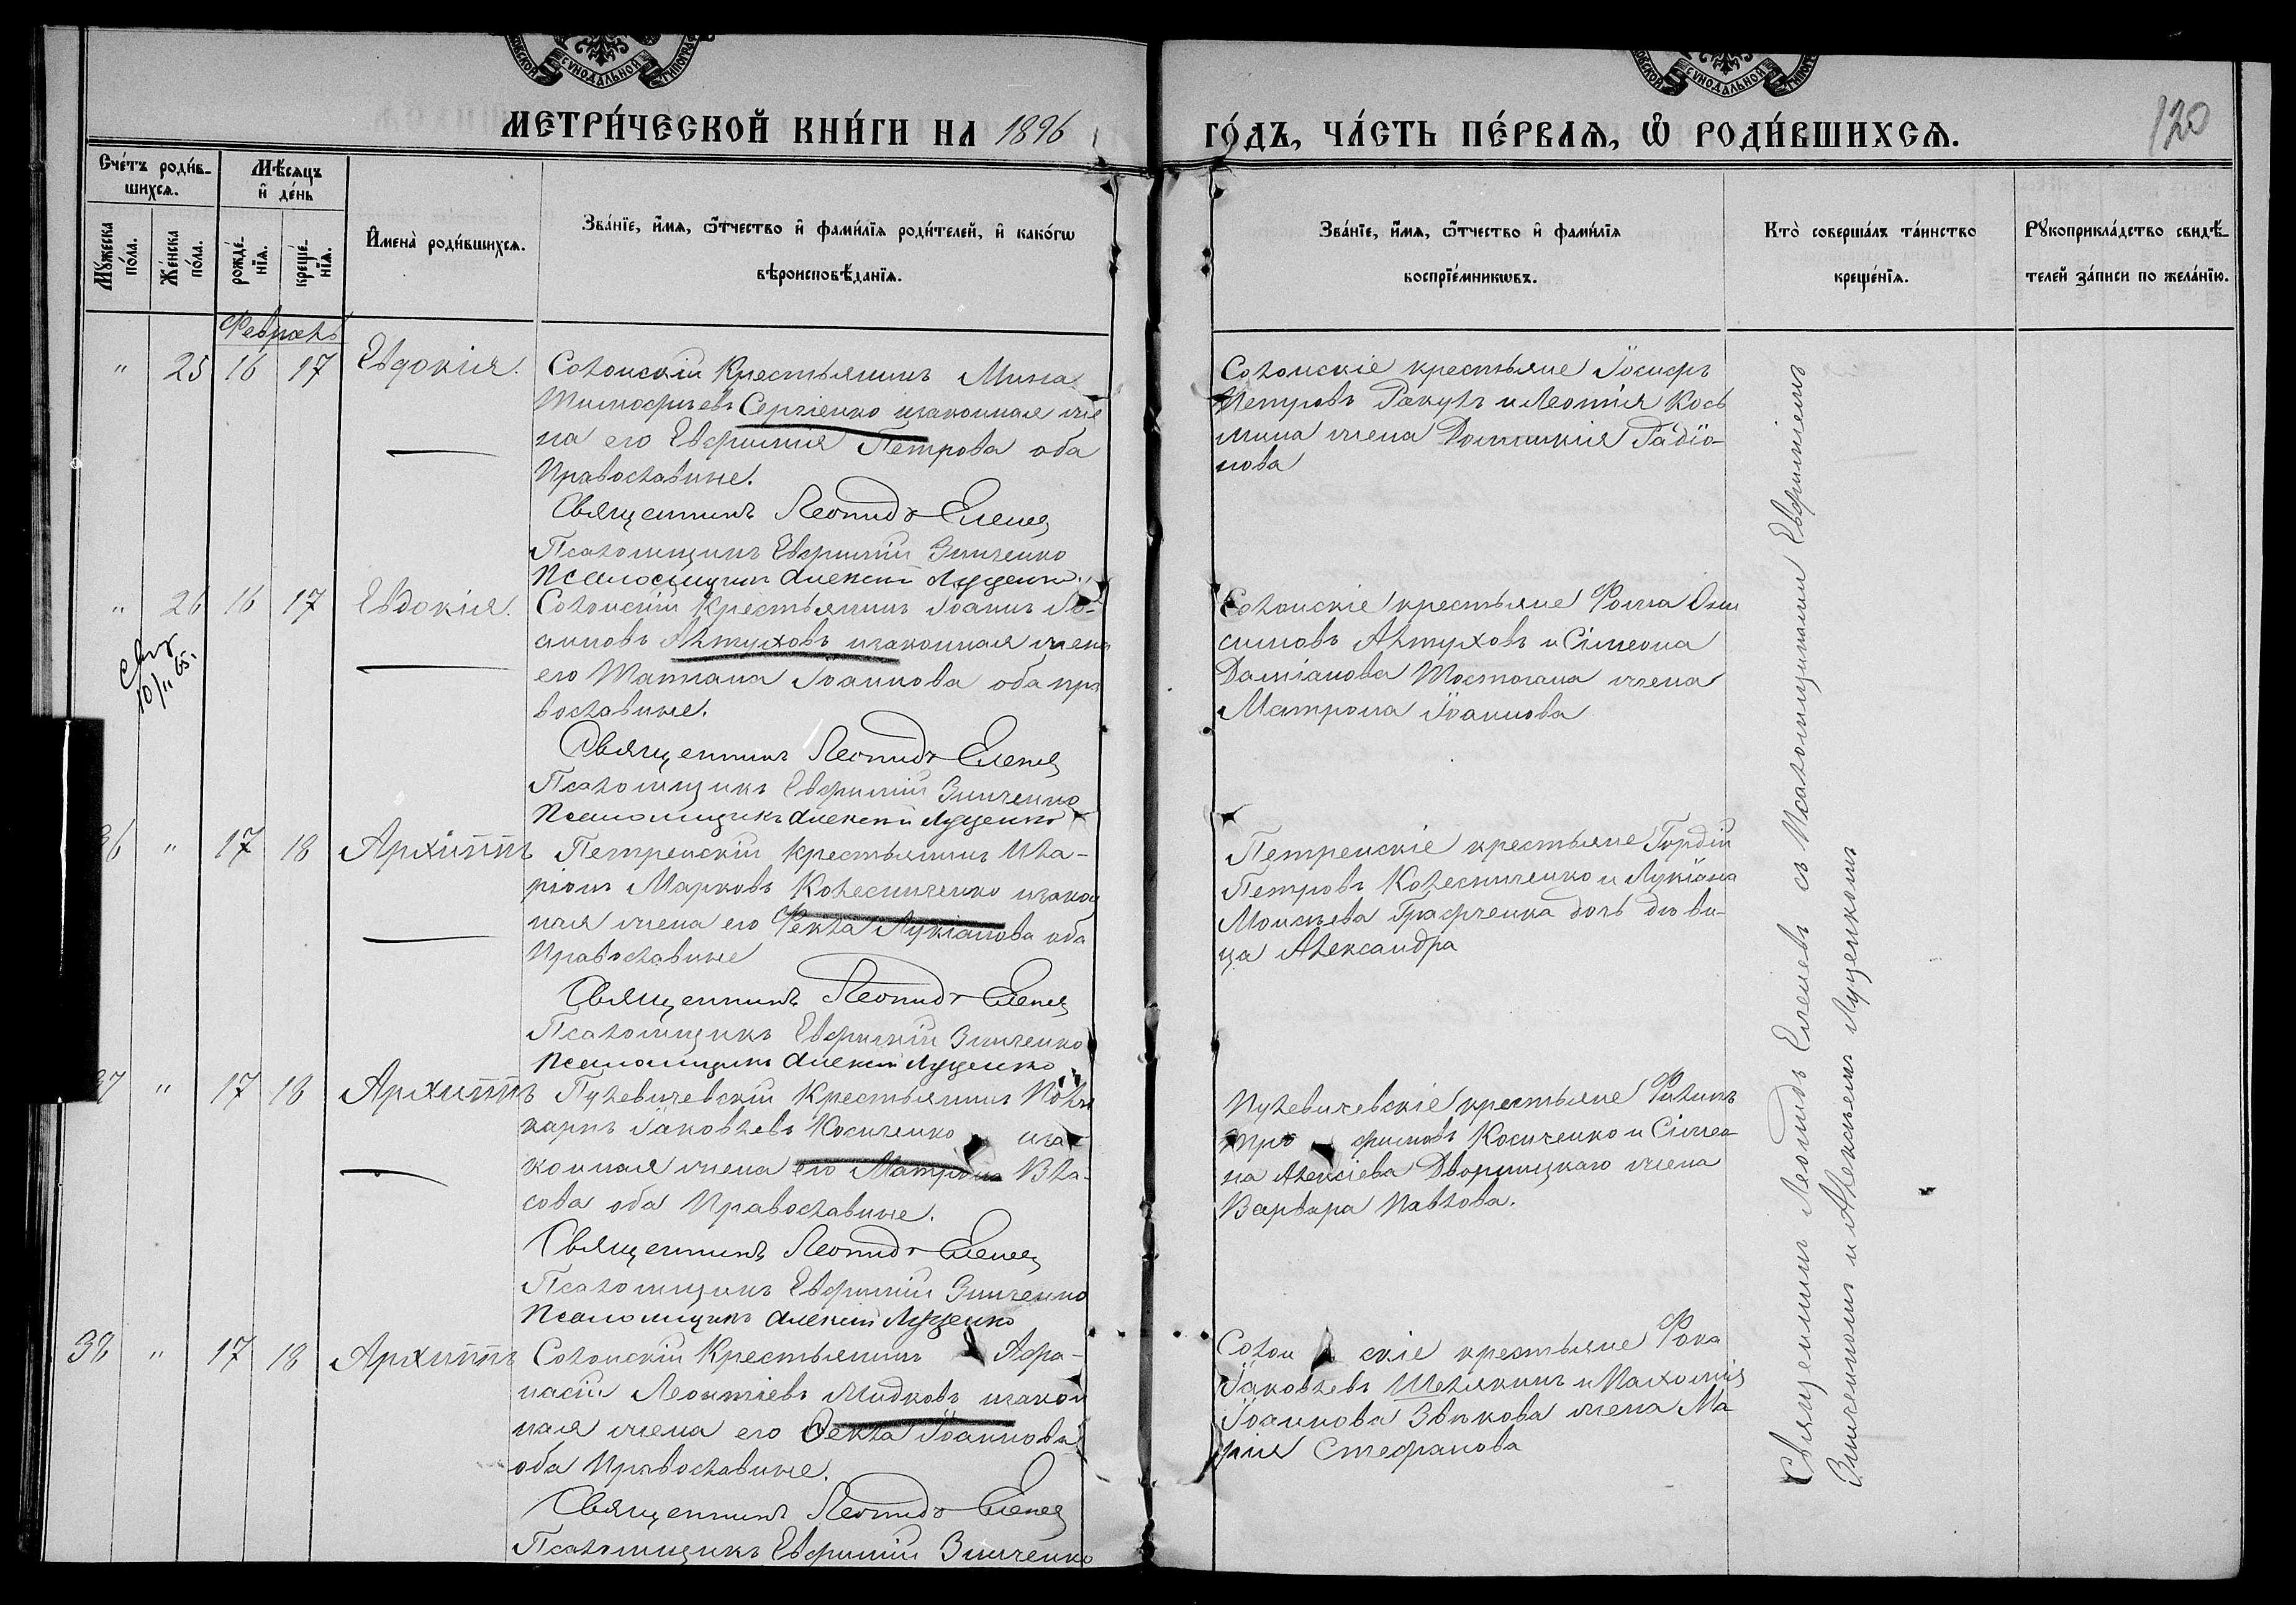 МЕТРИ́ЧЕСКОЙ КНИ́ГИ НА 1896
ГО́ДЪ, ЧА́СТЬ ПЕ́РВАѦ, Ѡ҆ РОДИ́ВШИХСѦ.
120
Сче́тъ роди́в-
шихсѧ.
Мѣ́сѧцъ
и҆ де́нь
Мꙋ́жеска
по́ла.
Же́нска
по́ла.
рожде́-
нїѧ.
креще́-
нїѧ.
И҆мена̀ роди́вшихсѧ.
Зва́нїе, и҆́мѧ, ѻ҆́тчество и҆ фами́лїѧ роди́телей, и҆ како́гѡ
вѣроисповѣ́данїѧ.
Зва́нїе, и҆́мѧ, ѻ҆́тчество и҆ фами́лїѧ
воспрїе́мникѡвъ.
Кто̀ соверша́лъ та́инство
креще́нїѧ.
Рꙋкоприкла́дство свидѣ́-
телей за́писи по жела́нїю.
Февраль
" 25 16 17 Евдокія.
Солонскій Крестьянинъ Мина
Тимофѣевъ Сергіенко и законная же
на его Евфимія Петрова оба
Православные.
Священникъ Леонидъ Еленевъ
Псаломщикъ Евфимій Зинченко
Псаломщикъ Алексій Луценко.
Солонскіе крестьяне Іосифъ
Петровъ Ракулъ и Леонтія Кось
мина жена Домникія Радіо-
нова
" 26 16 17 Евдокія.
10/II 65.
Солонскій Крестьянинъ Іоаннъ Зо-
симовъ Алтуховъ и законная жена
его Татіана Іоаннова оба пра
вославные.
Священникъ Леонидъ Еленевъ
Псаломщикъ Евфимій Зинченко
Псаломщикъ Алексій Луценко
Солонскіе крестьяне Фома Они
симовъ Алтуховъ и Сімеона
Даміанова Толстогана жена
Матрона Іоаннова
36 " 17 18 Архиппъ
Петренскій Крестьянинъ Ила-
ріонъ Марковъ Колесниченко и закон
ная жена его Фекла Лукіанова оба
Православные
Священникъ Леонидъ Еленевъ
Псаломщикъ Евфимій Зинченко
Псаломщикъ Алексій Луценко
Петренскіе крестьяне Гордій
Петровъ Колесниченко и Лукіана
Моисѣева Графченка дочь дѣви-
ца Александра
37 " 17 18 Архиппъ
Пулевичевскій Крестьянинъ Поли
карпъ Іаковлевъ Косиченко и за-
конная жена его Матрона Вла-
сова оба Православные.
Священникъ Леонидъ Еленевъ
Псаломщикъ Евфимій Зинченко
Псаломщикъ Алексій Луценко
Пулевичевскіе крестьяне Филипъ
Тро фимовъ Косиченко и Сімео-
на Алексіева Дворницкаго жена
Варвара Павлова.
38 " 17 18 Архиппъ
Солонскій Крестьянинъ Афа-
насій Леонтіевъ Мидковъ и закон
ная жена его Фекла Іоаннова
оба Православные.
Священникъ Леонидъ Еленевъ
Псаломщикъ Евфимій Зинченко
Солон скіе крестьяне Фока
Іаковлевъ Шелякинъ и Пахомія
Іоаннова Звѣкова жена Ма-
рія Стефанова
Священникъ Леонидъ Еленевъ съ Псаломщиками Евфиміемъ
Зинченкомъ и Алексѣемъ Луценкомъ